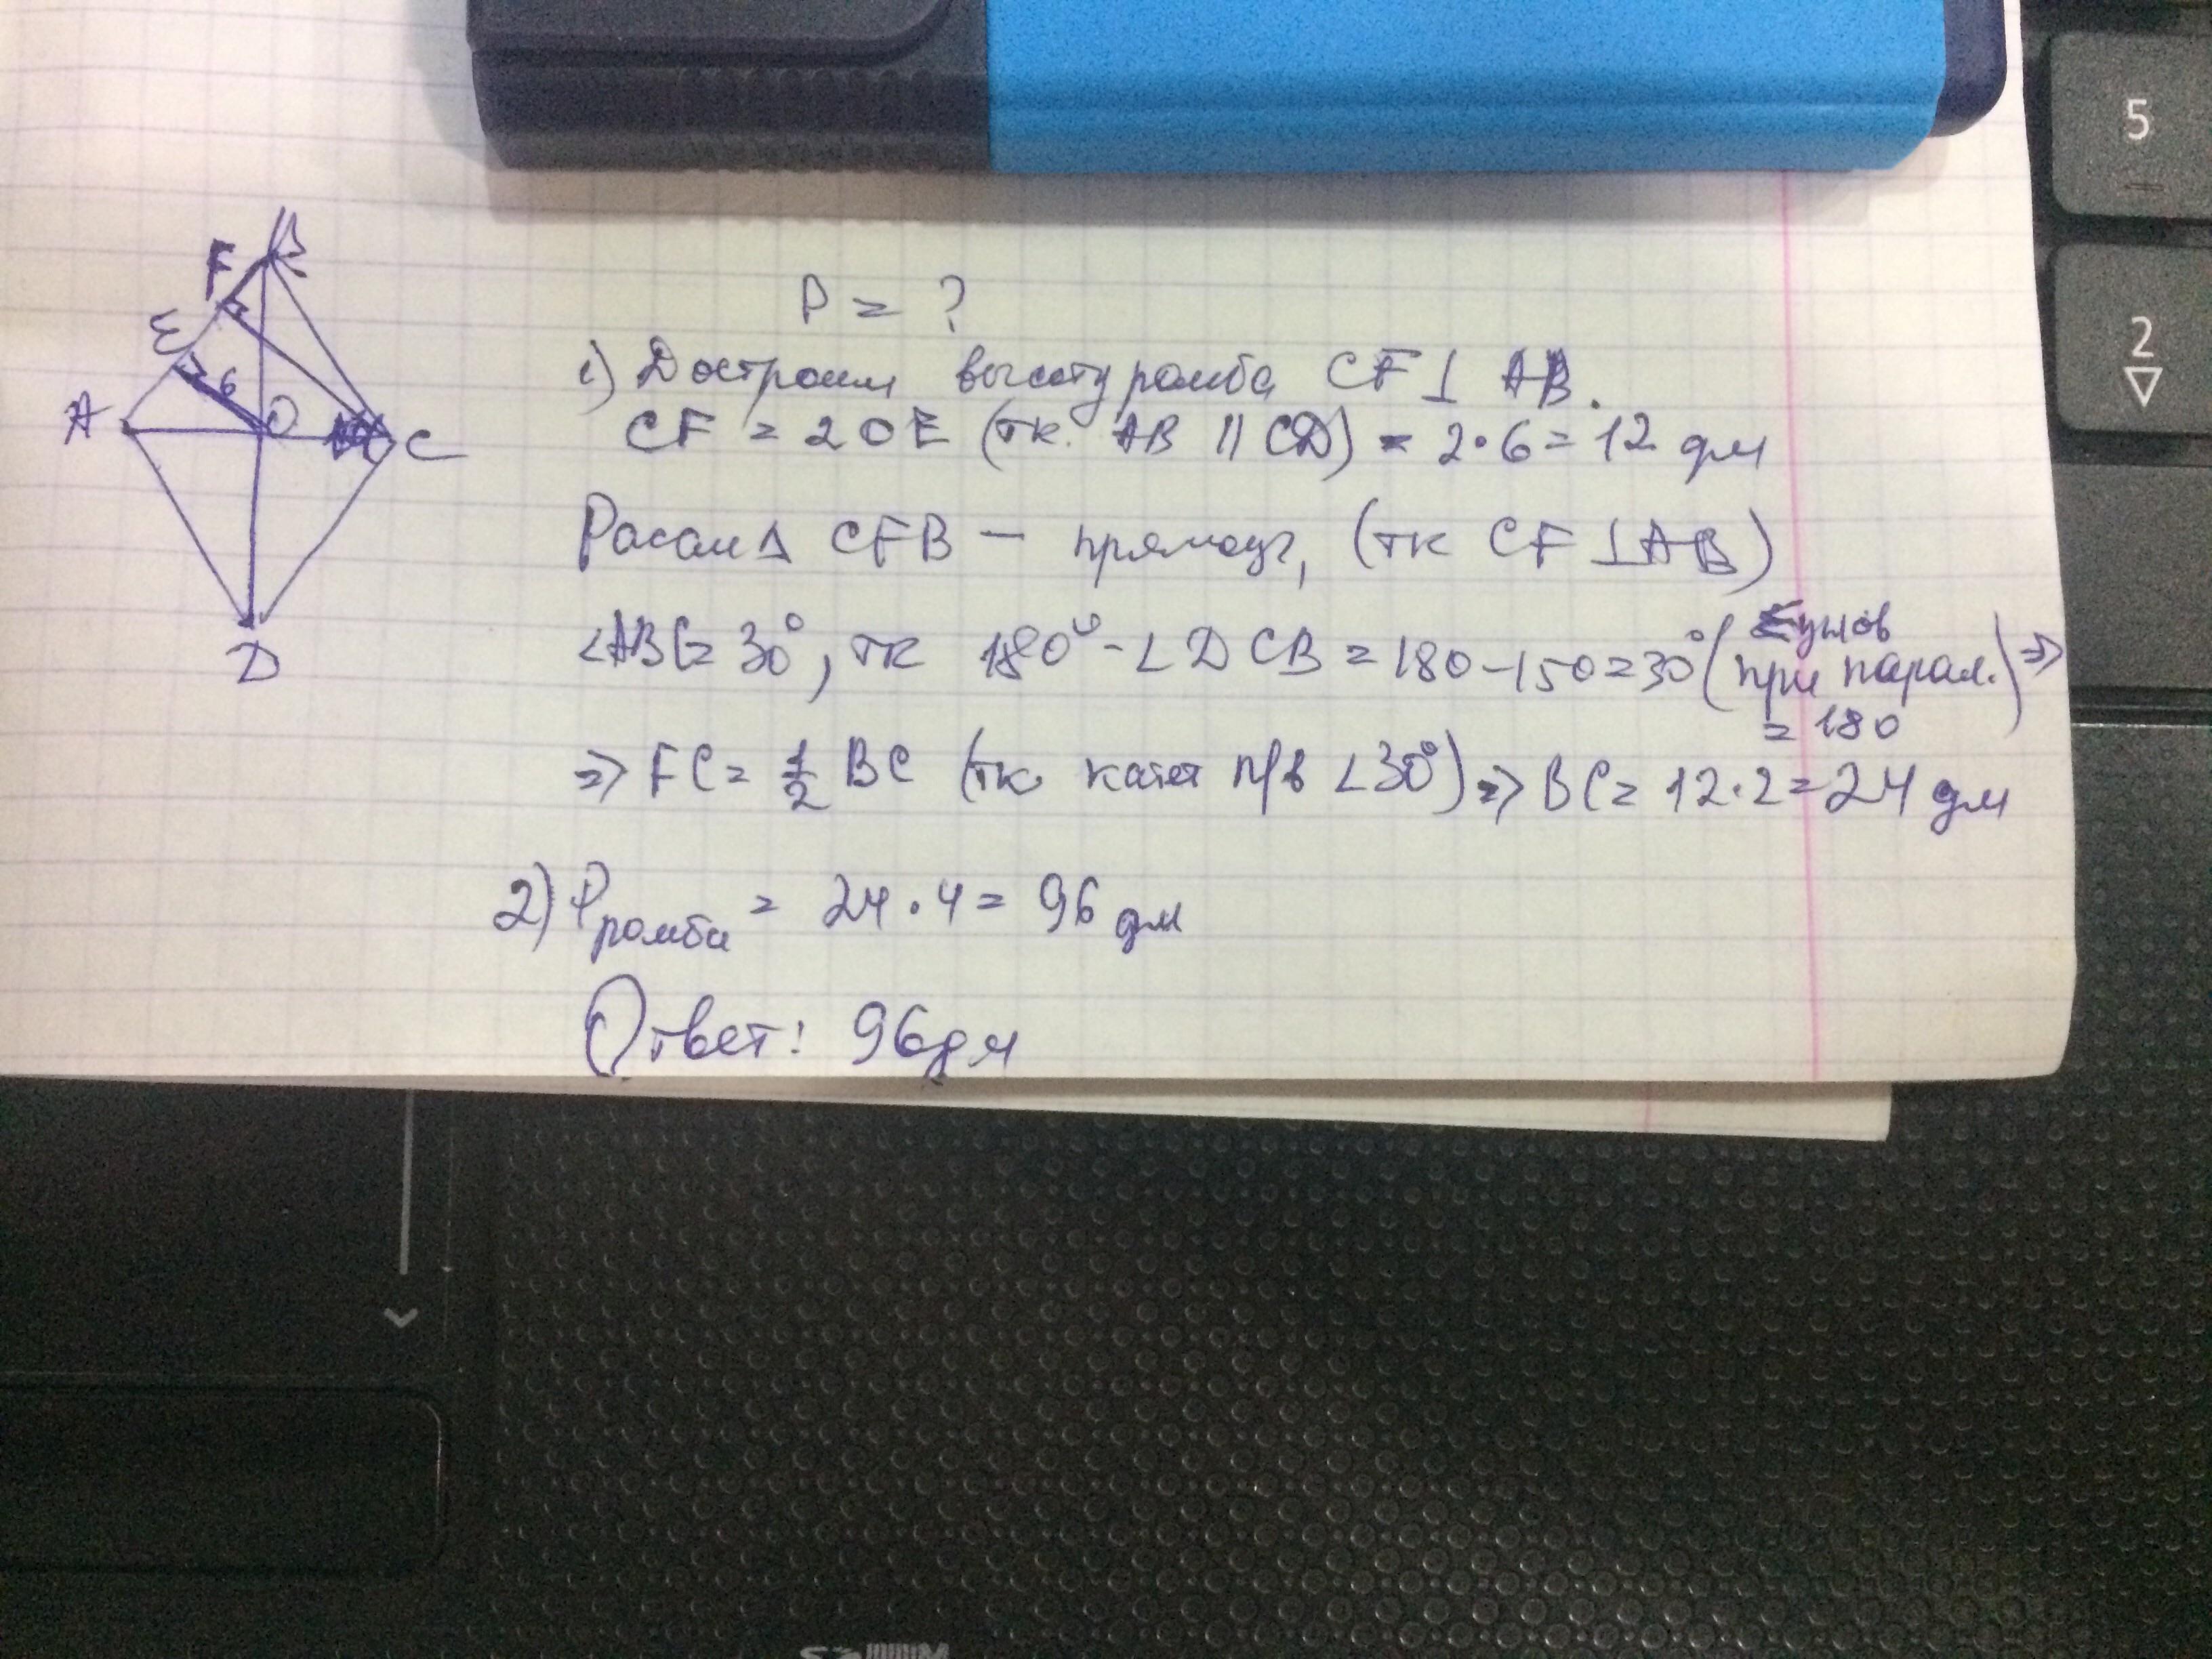 P = ?
1) Достроим высоту ромба CF ⊥ AB.
CF = 2OE (тк. AB || CD) = 2·6 = 12 дм
Рассм Δ CFB — прямоуг, (тк CF ⊥ AB)
∠ABC = 30°, тк 180° - ∠DCB = 180 - 150 = 30° (Σ углов при парал. = 180) ⇒
⇒ FC = 1/2 BC (тк катет п/в ∠30°) ⇒ BC = 12·2 = 24 дм
2) P ромба = 24·4 = 96 дм
Ответ: 96 дм
B
F
E
6
A
O
C
D
5
2